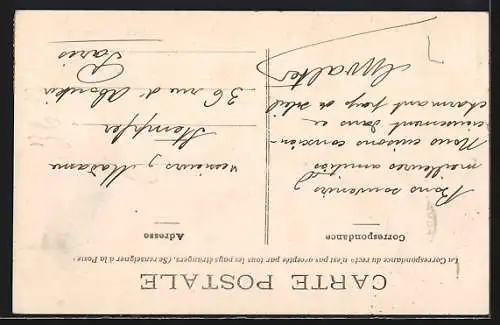 CARTE POSTALE
La Correspondance du recto n'est pas acceptée par tous les pays étrangers. (Se renseigner à la Poste)
Correspondance
Bons souvenirs &
meilleures amitiés
Nous cuisons conscien-
cieusement dans ce
charmant pays de soleil
Adresse
Messieurs & Madame
Stempfer
36 rue d'Aboukir
Paris